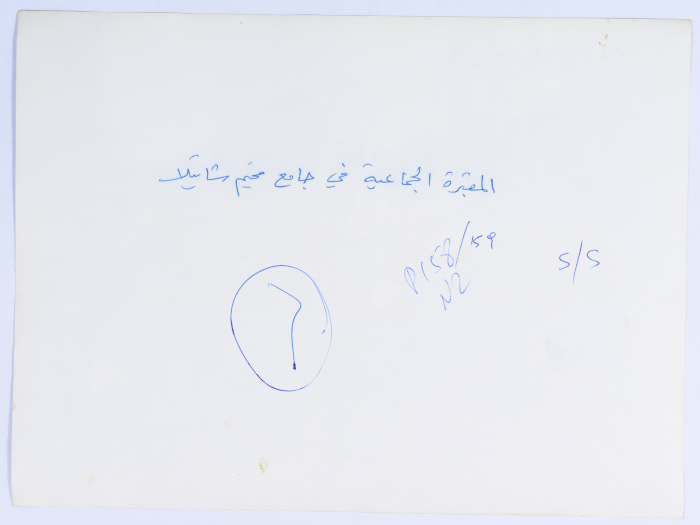 المقبرة الجماعية في جامع مخيم شاتيلا
P158/159
N2
S/S
٦